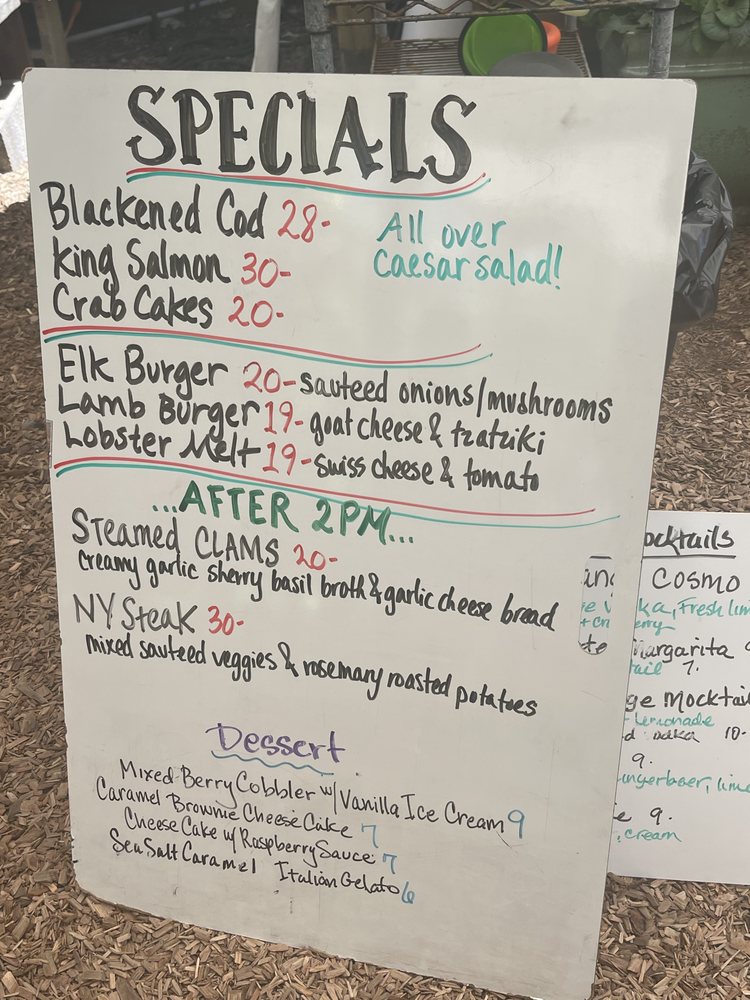 SPECIALS
Blackened Cod 28-
King Salmon 30-
Crab Cakes 20-
All over
Caesar salad!
Elk Burger 20- sauteed onions/mushrooms
Lamb Burger 19- goat cheese & tzatziki
Lobster Melt 19- swiss cheese & tomato
...AFTER 2PM...
Steamed CLAMS 20-
creamy garlic sherry basil broth & garlic cheese bread
NY Steak 30-
mixed sauteed veggies & rosemary roasted potatoes
Dessert
Mixed Berry Cobbler w/ Vanilla Ice Cream 9
Caramel Brownie Cheese Cake 7
Cheese Cake w/ Raspberry Sauce 7
Sea Salt Caramel Italian Gelato 6
ocktails
Cosmo
ka, Fresh lim
erry
argarita
tail 7.
ge Mocktai
Lemonade
10-
9.
lime
e 9.
cream